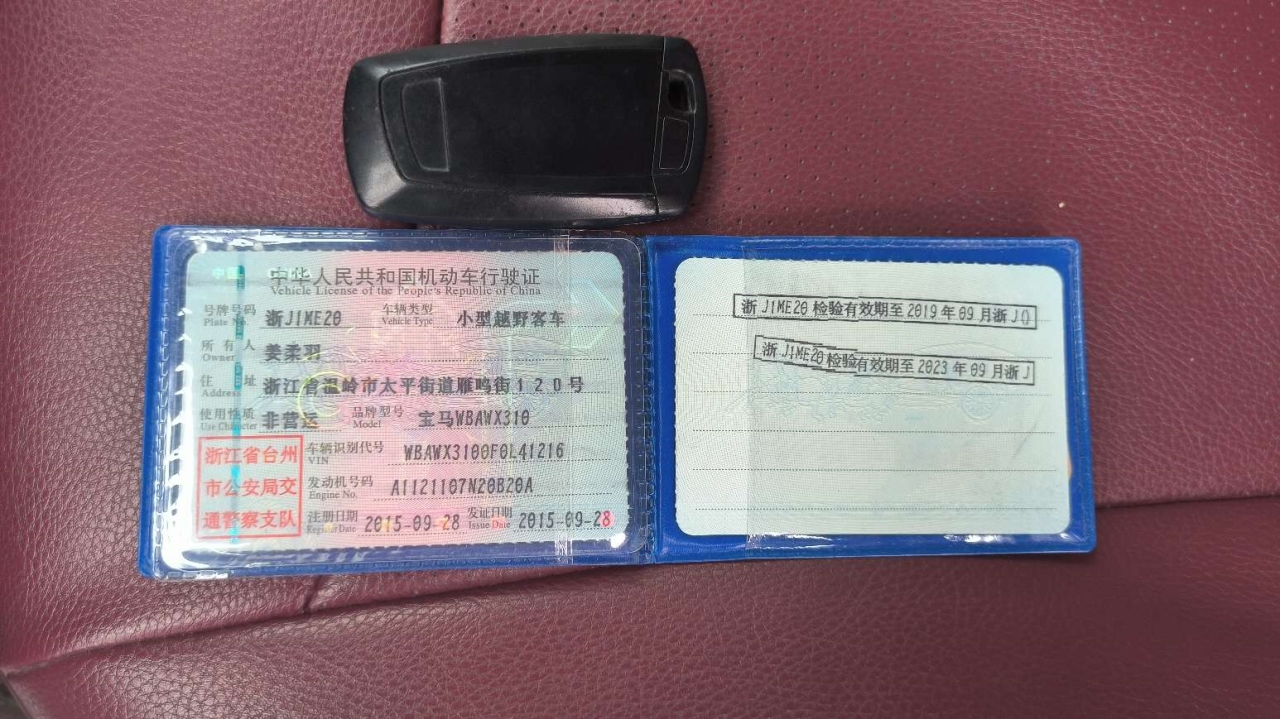 中华人民共和国机动车行驶证
Vehicle License of the People's Republic of China
号牌号码 浙J1ME20 车辆类型 小型越野客车
Plate No. Vehicle Type
所有人 姜柔羽
Owner
住址 浙江省温岭市太平街道雁鸣街120号
Address
使用性质 非营运 品牌型号 宝马WBAWX310
Use Character Model
浙江省台州
市公安局交
通警察支队
车辆识别代号 WBAWX3100F0L41216
VIN
发动机号码 A1121107N20B20A
Engine No.
注册日期 2015-09-28 发证日期 2015-09-28
Register Date Issue Date
浙J1ME20检验有效期至2019年09月浙J()
浙J1ME20检验有效期至2023年09月浙J